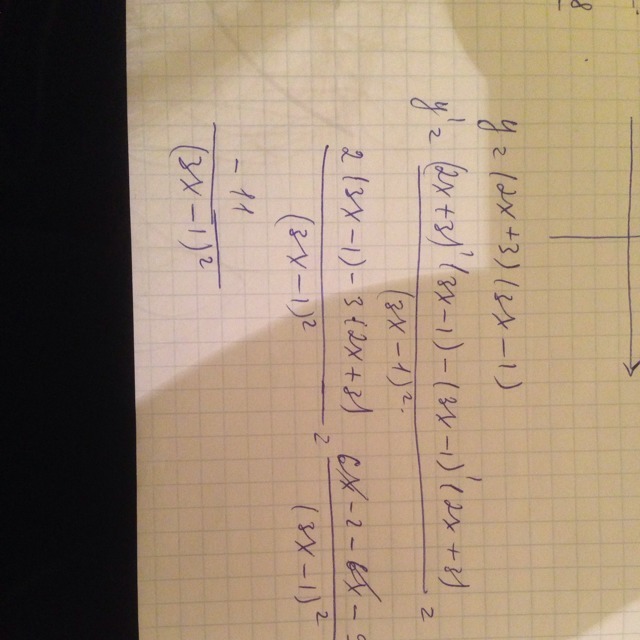 8
y = (2x+3)(3x-1)
y' = (2x+3)'(3x-1) - (3x-1)'(2x+3) =
(3x-1)²
2(3x-1) - 3(2x+3) = 6x-2-6x-9
(3x-1)² (3x-1)²
-11
(3x-1)²